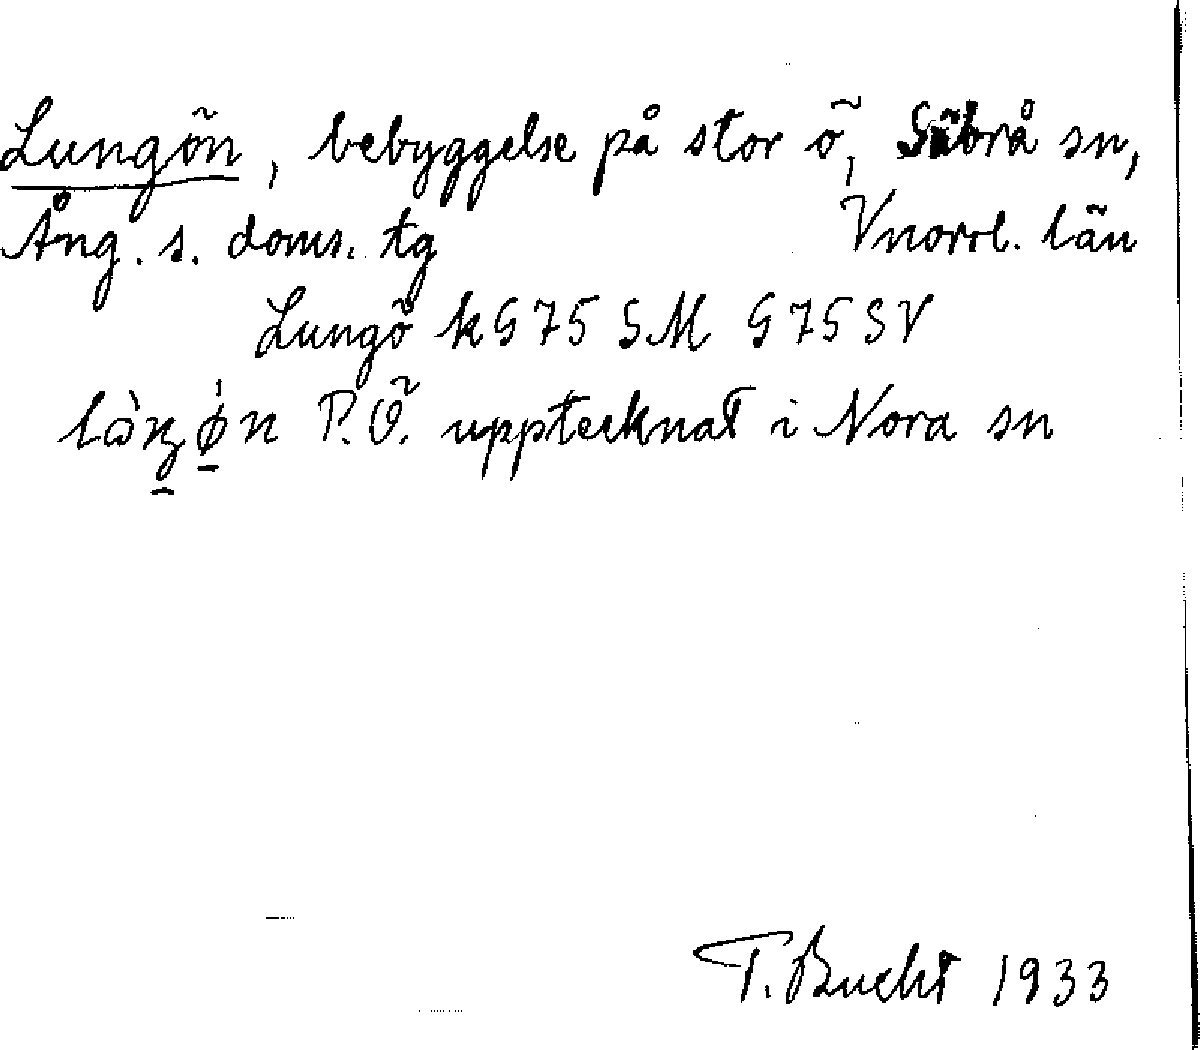 Lungön, bebyggelse på stor ö, Säbrå sn,
Ång. s. doms. tg Vnorrl. län
Lungö kG75 SM G75SV
P.Ö. upptecknat i Nora sn
T. Bucht 1933